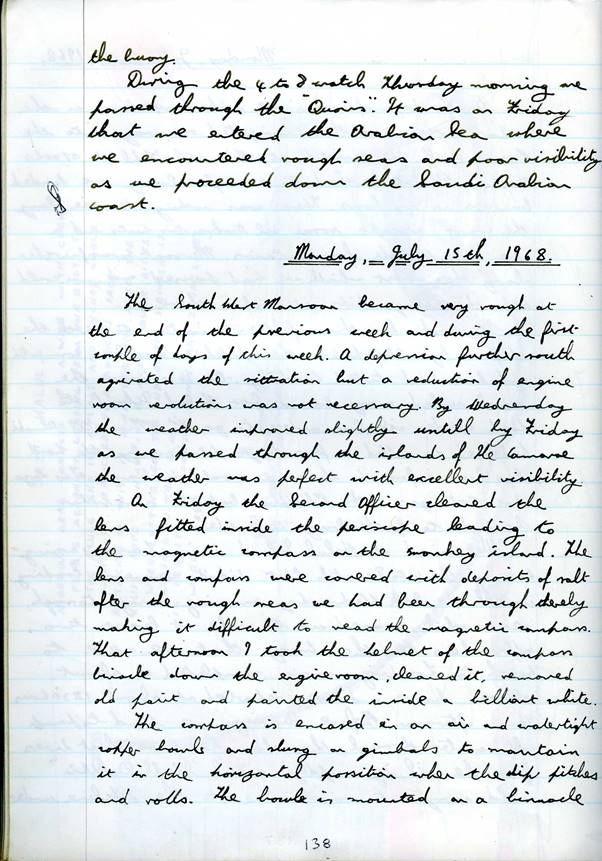 the buoy.
During the 4 to 8 watch Thursday morning we
passed through the "Quoins". It was on Friday
that we entered the Arabian Sea where
we encountered rough seas and poor visibility
as we proceeded down the Saudi Arabian
coast.
Monday, July 15th, 1968.
The South West Monsoon became very rough at
the end of the previous week and during the first
couple of days of this week. A depression further south
agrivated the sittration but a reduction of engine
room revolutions was not necessary. By Wednesday
the weather improved slightly untill by Friday
as we passed through the islands of the
the weather was perfect with excellent visibility.
On Friday the Second Officer cleaned the
lens fitted inside the periscope leading to
the magnetic compass on the monkey island. The
lens and compass were covered with deposits of salt
after the rough seas we had been through thereby
making it difficult to read the magnetic compass.
That afternoon I took the helmet of the compass
binacle down the engineroom, cleaned it, removed
old paint and painted the inside a billiant white.
The compass is encased in an air and watertight
copper bowle and slung on gimbals to maintain
it in the horizontal possition when the ship pitches
and rolls. The bowle is mounted on a binnacle
138